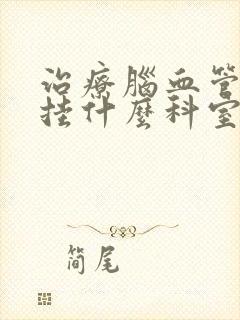 治療腦血管
挂什麼科室
简尾